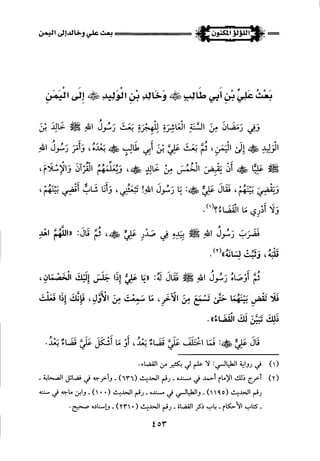 بعث علي وخالد إلى اليمن
اللؤلؤ المكنون
بَعْثُ عَلِيِّ بْنِ أَبِي طَالِبٍ ﵁ وَخَالِدِ بْنِ الْوَلِيدِ ﵁ إِلَى الْيَمَنِ
وَفِي رَمَضَانَ مِنَ السَّنَةِ الْعَاشِرَةِ لِلْهِجْرَةِ بَعَثَ رَسُولُ اللهِ ﷺ خَالِدَ بْنَ
الْوَلِيدِ ﵁ إِلَى الْيَمَنِ، ثُمَّ بَعَثَ عَلِيَّ بْنَ أَبِي طَالِبٍ ﵁ بَعْدَهُ، وَأَمَرَ رَسُولُ اللهِ
ﷺ عَلِيًّا ﵁ أَنْ يَقْبِضَ الْخُمُسَ مِنْ خَالِدٍ ﵁، وَيُعَلِّمَهُمُ الْقُرْآنَ وَالْإِسْلَامَ،
وَيَقْضِيَ بَيْنَهُمْ، فَقَالَ عَلِيٌّ ﵁: يَا رَسُولَ اللهِ! تَبْعَثُنِي، وَأَنَا شَابٌّ أَقْضِي بَيْنَهُمْ،
وَلَا أَدْرِي مَا الْقَضَاءُ؟(١).
فَضَرَبَ رَسُولُ اللهِ ﷺ بِيَدِهِ فِي صَدْرِ عَلِيٍّ ﵁، ثُمَّ قَالَ: «اللَّهُمَّ اهْدِ
قَلْبَهُ، وَثَبِّتْ لِسَانَهُ»(٢).
ثُمَّ أَوْصَاهُ رَسُولُ اللهِ ﷺ فَقَالَ لَهُ: «يَا عَلِيُّ إِذَا جَلَسَ إِلَيْكَ الْخَصْمَانِ،
فَلَا تَقْضِ بَيْنَهُمَا حَتَّى تَسْمَعَ مِنَ الْآخَرِ، مَا سَمِعْتَ مِنَ الْأَوَّلِ، فَإِنَّكَ إِذَا فَعَلْتَ
ذَلِكَ تَبَيَّنَ لَكَ الْقَضَاءُ».
قَالَ عَلِيٌّ ﵁: فَمَا اخْتَلَفَ عَلَيَّ قَضَاءٌ بَعْدُ، أَوْ مَا أَشْكَلَ عَلَيَّ قَضَاءٌ بَعْدُ.
(١) في رواية الطيالسي: لا علم لي بكثير من القضاء.
(٢) أخرج ذلك الإمام أحمد في مسنده - رقم الحديث (٦٣٦) - وأخرجه في فضائل الصحابة -
رقم الحديث (١١٩٥) - والطيالسي في مسنده - رقم الحديث (١٠٠) - وابن ماجه في سننه
- كتاب الأحكام - باب ذكر القضاة - رقم الحديث (٢٣١٠) - وإسناده صحيح.
٤٥٣